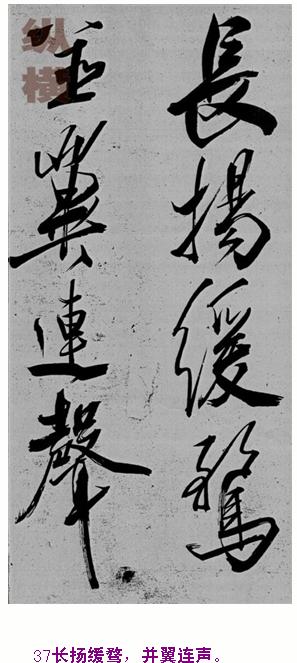 長揚緩騖
並翼連聲
纵横
37长扬缓骛，并翼连声。